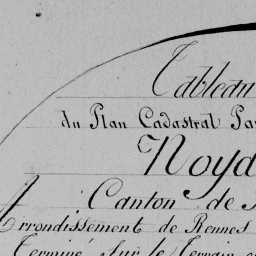 Tableau
du Plan Cadastral Pa
Noya
Canton de
Arrondissement de Rennes
Terminé Sur le Terrain